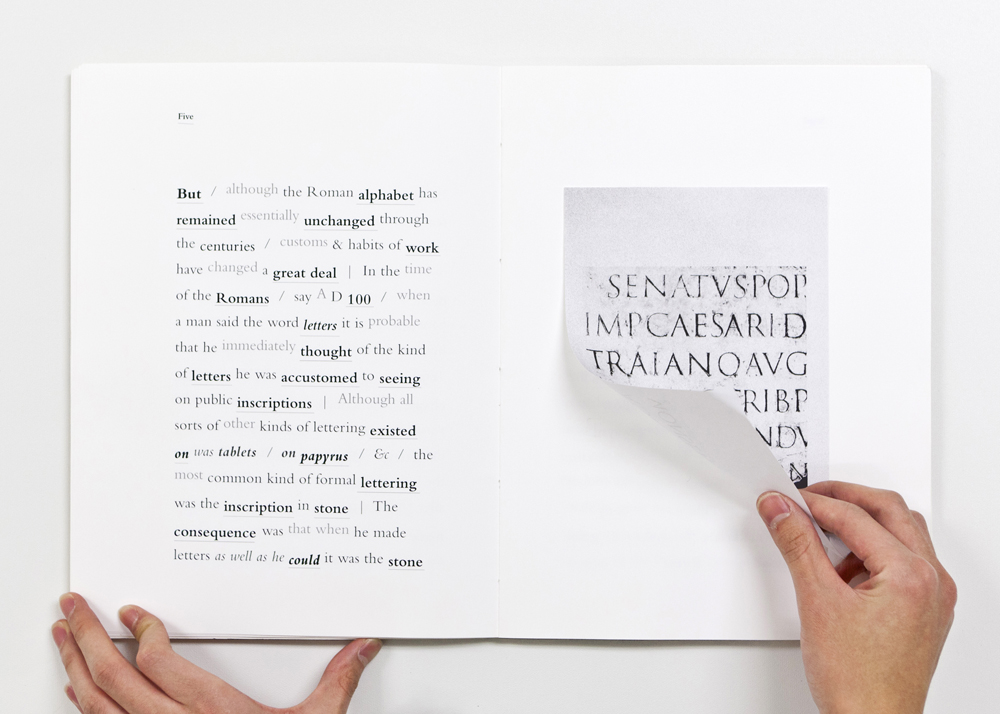 Five
But / although the Roman alphabet has
remained essentially unchanged through
the centuries / customs & habits of work
have changed a great deal | In the time
of the Romans / say A D 100 / when
a man said the word letters it is probable
that he immediately thought of the kind
of letters he was accustomed to seeing
on public inscriptions | Although all
sorts of other kinds of lettering existed
on was tablets / on papyrus / &c / the
most common kind of formal lettering
was the inscription in stone | The
consequence was that when he made
letters as well as he could it was the stone
SENATVSPOP
IMPCAESARID
TRAIANOAVG
RIBP
NDV